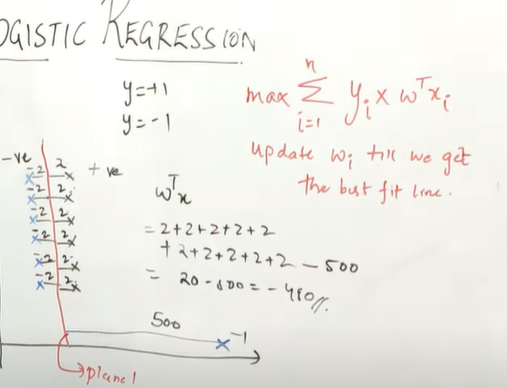 OGISTIC REGRESSION
y=+1
y=-1
n
max Σ yi x wTxi
i=1
update wi till we get
the best fit line.
-ve
+ve
-2 2
-2 2
-2 2
-2 2
-2 2
-2 2
wTx
= 2+2+2+2+2
+ 2+2+2+2+2 - 500
= 20 - 500 = - 480//.
500
-1
plane1